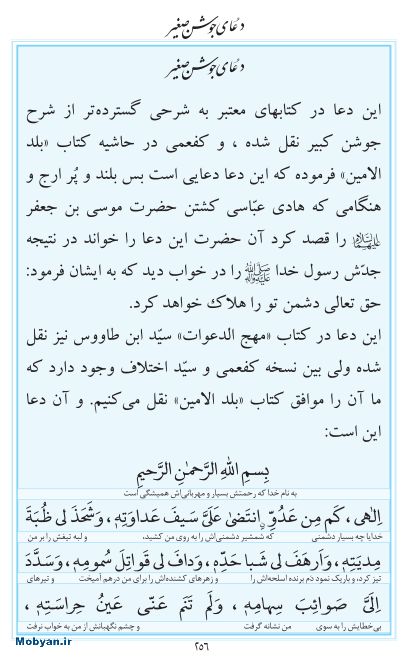 دعای جوشن صغیر
دعای جوشن صغیر
این دعا در کتابهای معتبر به شرحی گسترده‌تر از شرح
جوشن کبیر نقل شده ، و کفعمی در حاشیه کتاب «بلد
الامین» فرموده که این دعا دعایی است بس بلند و پُر ارج و
هنگامی که هادی عبّاسی کشتن حضرت موسی بن جعفر
علیهماالسلام را قصد کرد آن حضرت این دعا را خواند در نتیجه
جدّش رسول خدا ﷺ را در خواب دید که به ایشان فرمود:
حق تعالی دشمن تو را هلاک خواهد کرد.
این دعا در کتاب «مهج الدعوات» سیّد ابن طاووس نیز نقل
شده ولی بین نسخه کفعمی و سیّد اختلاف وجود دارد که
ما آن را موافق کتاب «بلد الامین» نقل می‌کنیم. و آن دعا
این است:
بِسمِ اللهِ الرَّحمٰنِ الرَّحیمِ
به نام خدا که رحمتش بسیار و مهربانی‌اش همیشگی است
اِلٰهی ، کَم مِن عَدُوٍّ انتَضیٰ عَلَیَّ سَیفَ عَداوَتِهِ ، وَشَحَذَ لی ظُبَةَ
خدایا چه بسیار دشمنی که شمشیر دشمنی‌اش را به روی من کشید، و لبه تیغش را بر من
مِدیَتِهِ ، وَاَرهَفَ لی شَبا حَدِّهِ ، وَدافَ لی قَواتِلَ سُمومِهِ ، وَسَدَّدَ
تیز کرد، و باریک نمود دَم برنده اسلحه‌اش را و زهرهای کشنده‌اش را برای من درهم آمیخت و تیرهای
اِلَیَّ صَوائِبَ سِهامِهِ ، وَلَم تَنَم عَنّی عَینُ حِراسَتِهِ ،
بی‌خطایش را به سوی من نشانه گرفت و چشم نگهبانش از من به خواب نرفت
۲۵۶
Mobyan.ir